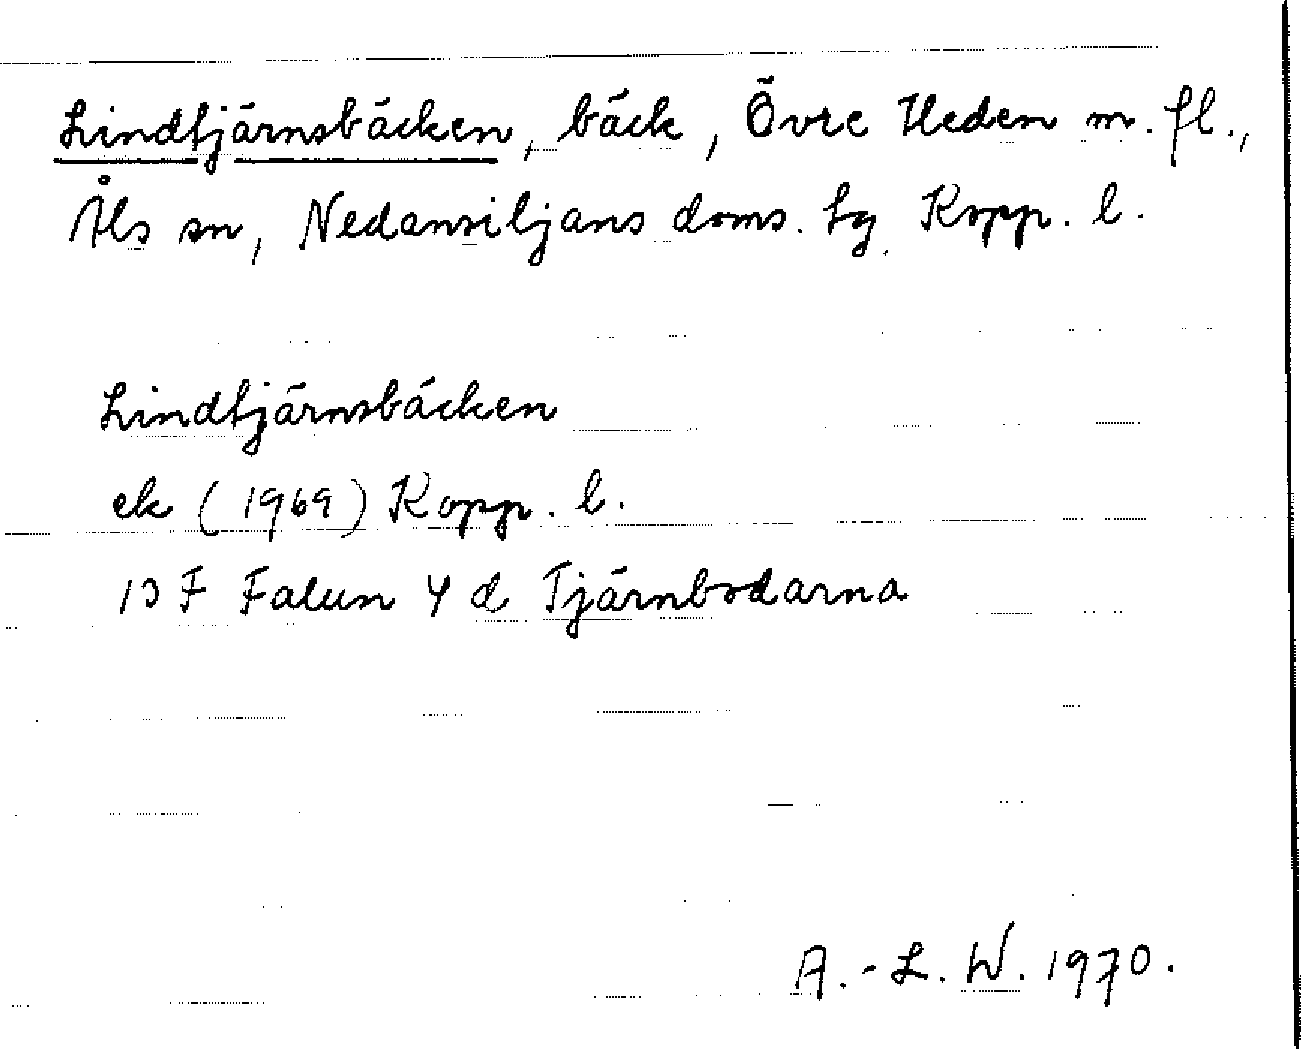 Lindtjärnsbäcken, bäck, Övre Heden m. fl.,
Åls sn, Nedansiljans doms. tg Kopp. l.
Lindtjärnsbäcken
ek (1969) Kopp. l.
13 F Falun 4 d Tjärnbodarna
A.-L. W. 1970.